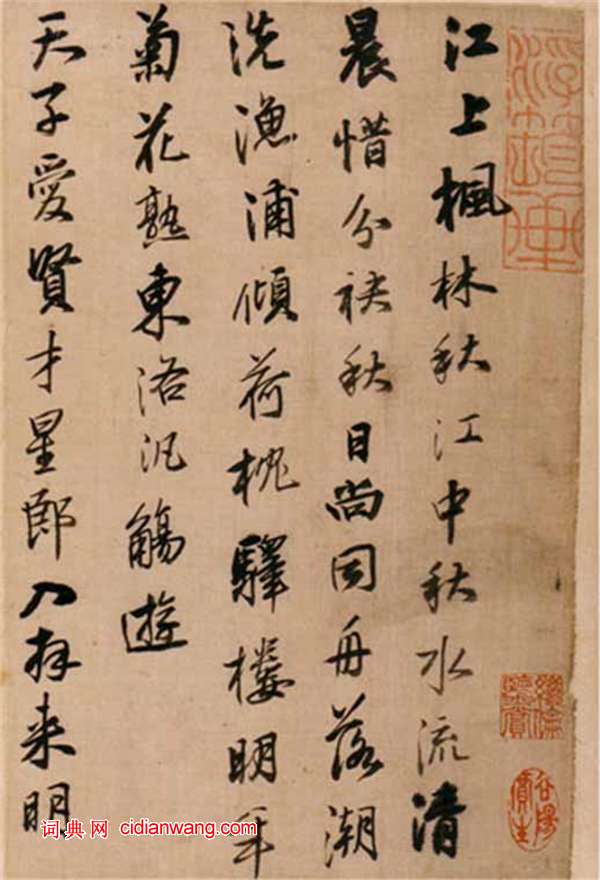 江上楓林秋江中秋水流清
晨惜分袂秋日尚同舟落潮
洗漁浦傾荷枕驛樓明年
菊花熟東洛汎觴遊
天子愛賢才星郎入拜来明
词典网 cidianwang.com